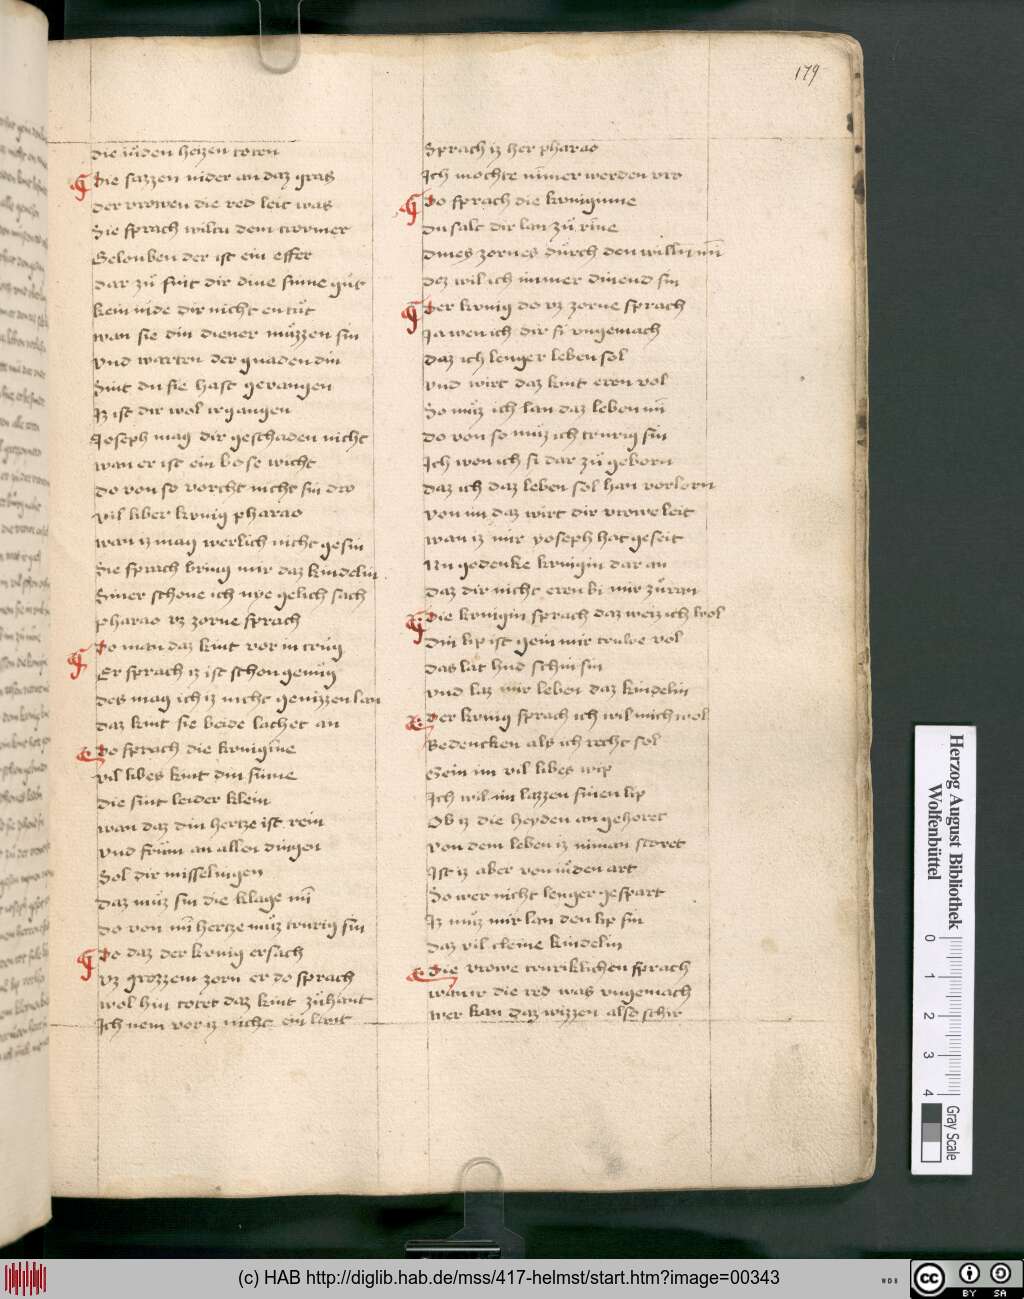 179
die iuͦden heizen toten
Die sazzen nider an daz gras
der vrowen die red leit was
Sie sprach wiltu dem tromer
Gelouben der ist ein effer
dar zuͦ sint dir dine sinne guͦt
kein nide dir nicht en tuͦt
wan sie din diener muͦzzen sin
vnd warten der gnaden din
Sint du sie hast gevangen
Iz ist dir wol irgangen
Joseph mag dir geschaden nicht
wan er ist ein bose wicht
do von so vorcht nicht sin dro
vil liber kvnig pharao
wan iz mag werlich nicht gesin
Sie sprach bring mir daz kindelin
Siner schone ich nye gelich sach
pharao vz zorne sprach
Do man daz kint vor in truͦg
Er sprach iz ist schon genuͦg
des mag ich iz nicht genizzen lan
daz kint sie beide lachet an
Do sprach die kvnigine
vil libes kint din sinne
die sint leider klein
wan daz din hertze ist rein
vnd frum an allen dingen
Sol dir misselingen
daz muͦz sin die klage mī
do von mī hertze muͦz trurig sin
Do daz der kvnig ersach
vz grozzem zorn er do sprach
wol hin totet daz kint zuͦhant
Ich nem vor iz nicht ein lant
Sprach iz her pharao
Ich mochte nimer werden vro
Do sprach die kvniginne
du salt dir lan zuͦ rine
dines zornes durch den willen mī
dez wil ich immer dinend sin
Der kvnig do vz zorne sprach
Ia wen ich dir si vngemach
daz ich lenger leben sol
vnd wirt daz kint eren vol
So muͦz ich lan daz leben mī
do von so muͦz ich trurig sin
Ich wen ich si dar zuͦ geborn
daz ich daz leben sol han vorlorn
von im daz wirt dir vrowe leit
wan iz mir yoseph hat geseit
Nu gedenke kvnigin dar an
daz dir nicht eren bi mir zuͦran
Die kvnigin sprach daz weiz ich wol
din lip ist gein mir truwe vol
das lat hud schin sin
vnd laz mir leben daz kindelin
Der kvnig sprach ich wil mich wol
Bedencken als ich recht sol
Gein im vil libes wip
Ich wil im lazzen sinen lip
Ob iz die heyden an gehoret
von dem leben iz niman storet
Ist iz aber von iuͦden art
So wer nicht lenger gespart
Iz muͦz mir lan den lip sin
daz vil cleine kindelin
Die vrowe truriklichen sprach
wan ir die red was vngemach
wer kan daz wizzen also schir
Herzog August Bibliothek
Wolfenbüttel
0 1 2 3 4
Gray Scale
(c) HAB http://diglib.hab.de/mss/417-helmst/start.htm?image=00343
WDB
cc BY SA